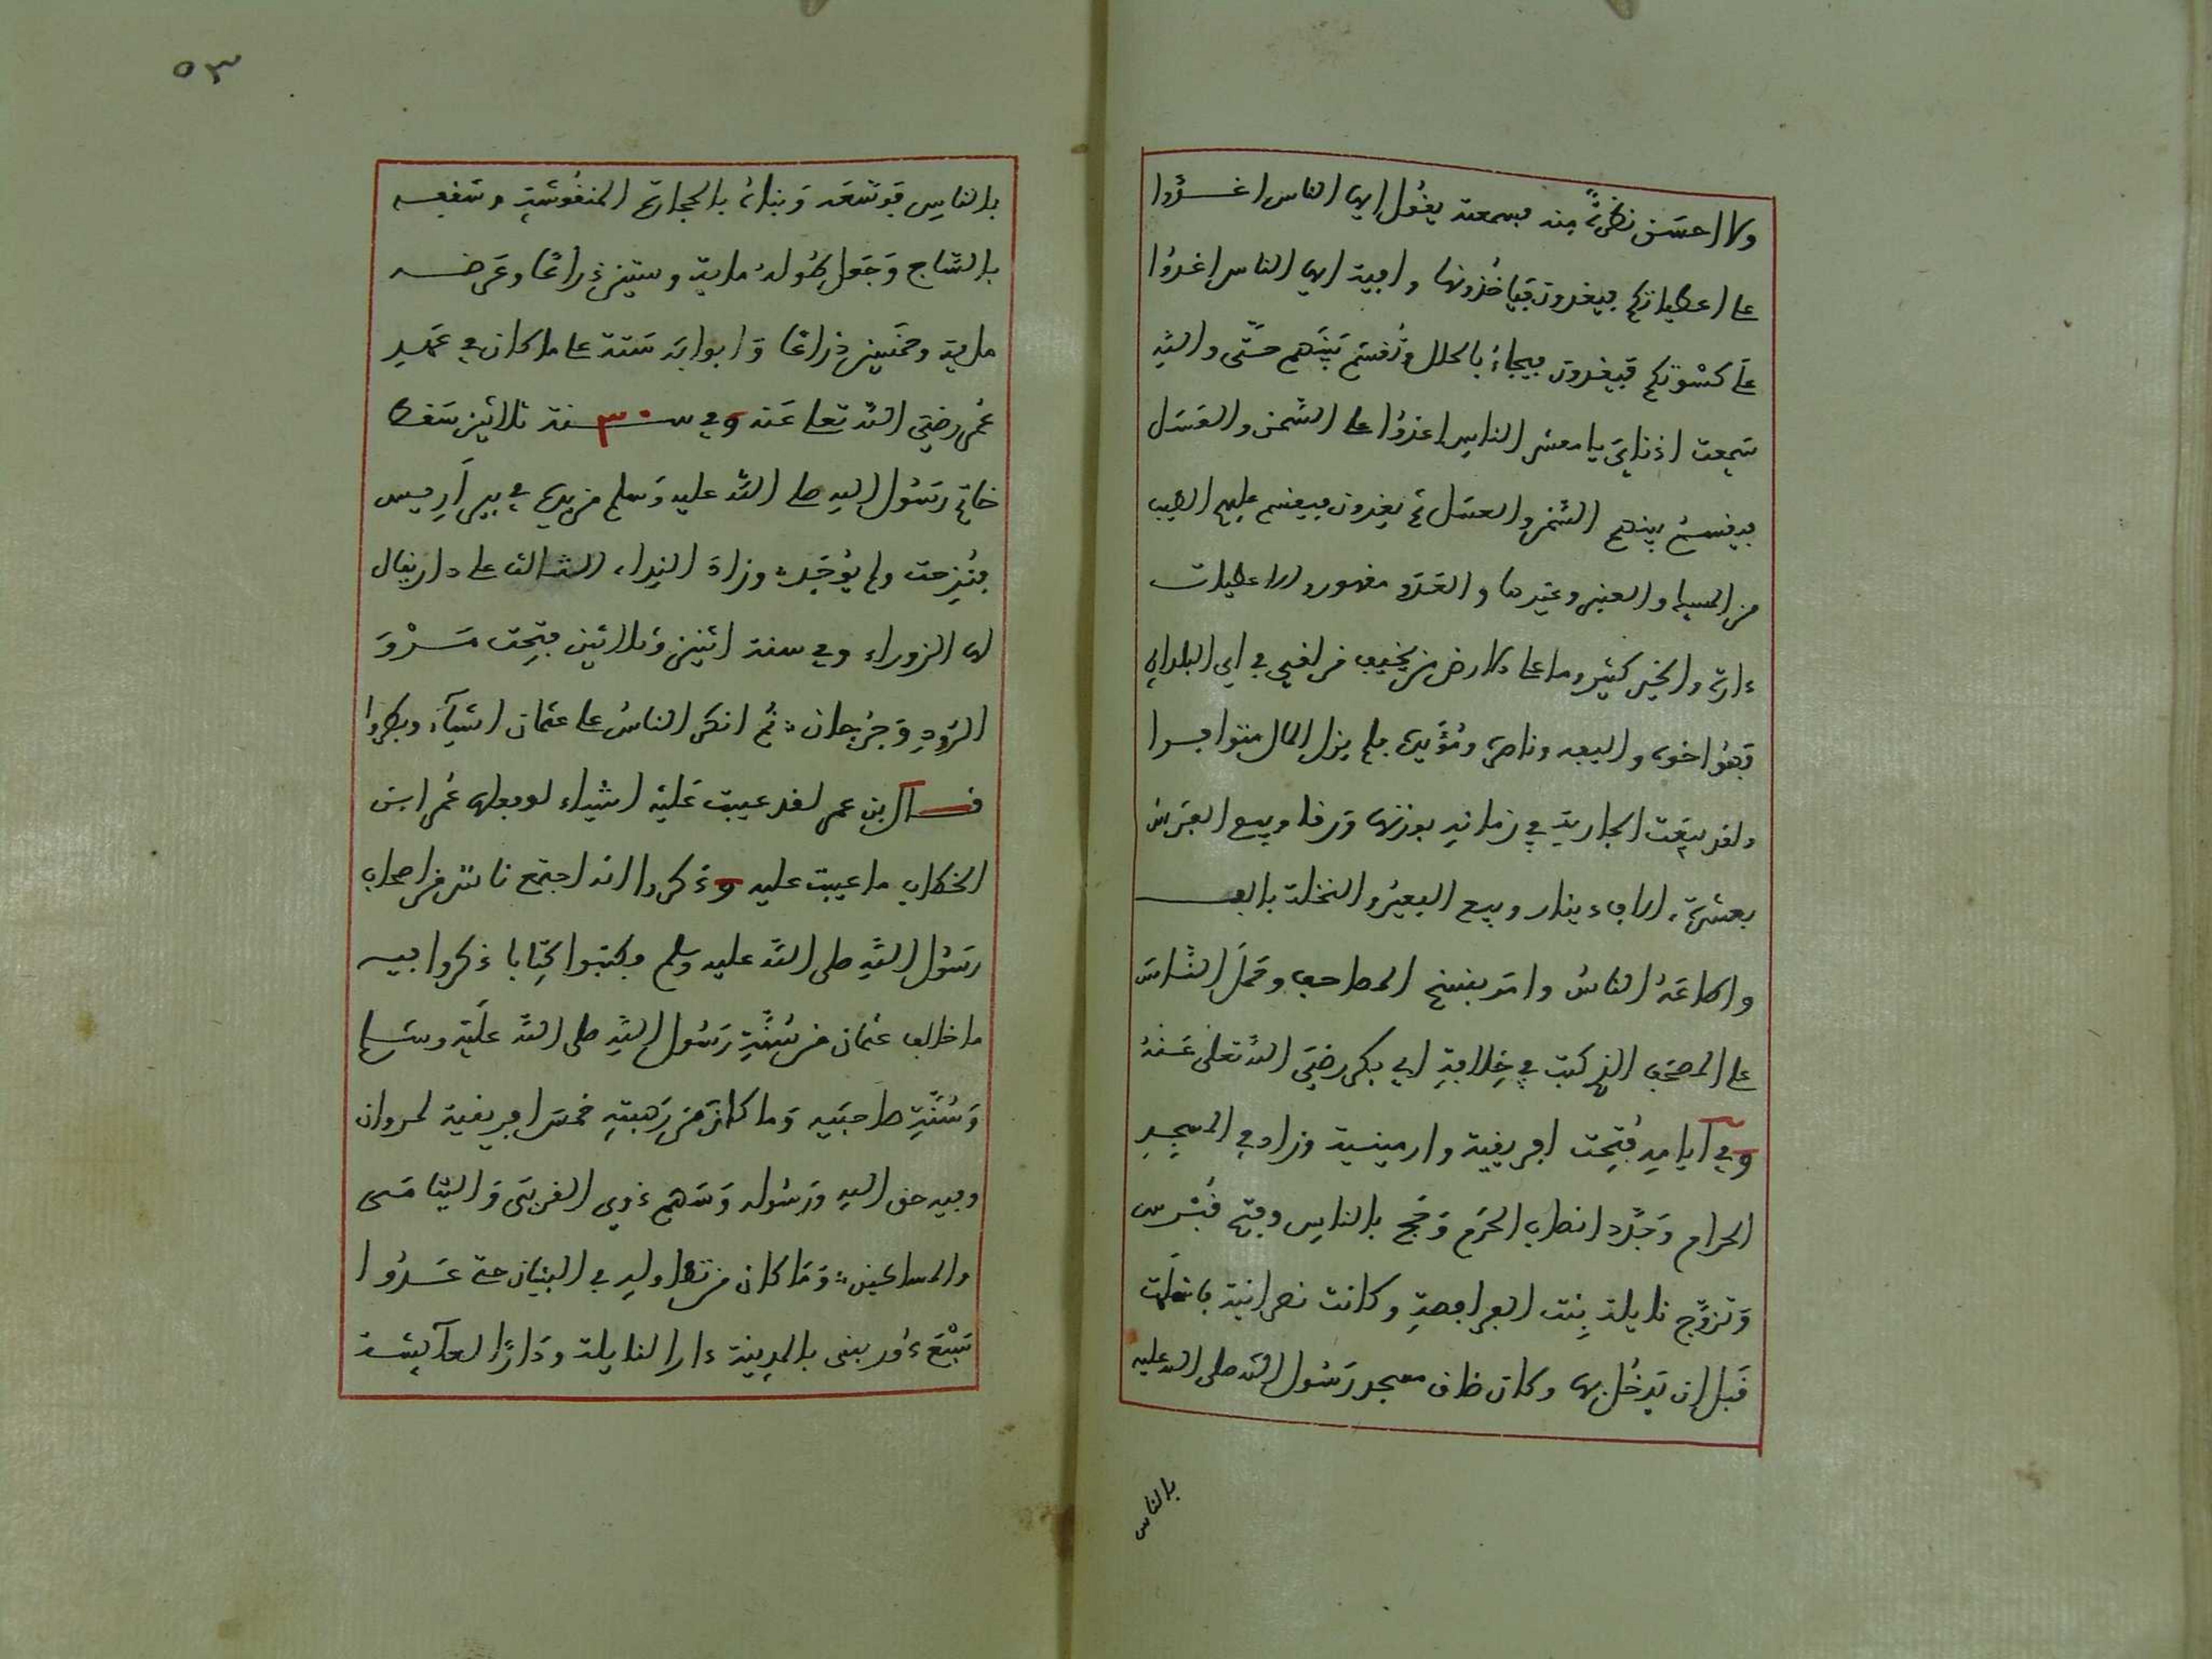 ولا احسن نظرة منه فسمعته يقول ايها الناس اغدوا
على اعطياتكم فيغدون فياخذونها وافية ايها الناس اغدوا
على كسوتكم فيغدون فيجاء بالحلل وتقسم بينهم حتى والله
سمعت اذناي يا معشر الناس اغدوا على السمن والعسل
فيقسم بينهم السمن والعسل ثم يغدون فيقسم عليهم الطيب
من المسك والعنبر وغيرها والعدو مقهور والاعطيات
دارة والخير كثير وما على الارض من يخيف من لقي في اي البلدان
فهو اخوه واليفه وناصره ومؤيده فلم يزل المال متوافرا
ولقد بيعت الجارية في زمانه بوزنها ورقا وبيع الفرس
بعشرة الاف دينار وبيع البعير والنخلة بالف
واطاعه الناس وامر بنسخ المصاحف وحمل الناس
على المصحف الذي كتب في خلافة ابي بكر رضي الله تعلى عنه
وفي ايامه فتحت افريقية وارمينية وزاد في المسجد
الحرام وجدد انصاب الحرم وحج بالناس وفتح قبرس
وتزوج نايلة بنت الفرافصة وكانت نصرانية فاسلمت
قبل ان يدخل بها وكان ضاق مسجد رسول الله صلى الله عليه
بالناس
٥٣
بالناس فوسعه وبناه بالحجارة المنقوشة وسقفه
بالساج وجعل طوله ماية وستين ذراعا وعرضه
ماية وخمسين ذراعا وابوابه ستة على ما كان في عهد
عمر رضي الله تعلى عنه وفي سنة ٣٠ ثلاثين سقط
خاتم رسول الله صلى الله عليه وسلم من يده في بير اريس
فنزحت ولم يوجد وزاد النداء الثالث على دار يقال
لها الزوراء وفي سنة اثنين وثلاثين فتحت مرو
الرود وجرجان ثم انكر الناس على عثمان اشياء
قال بن عمر لقد عيبت عليه اشياء لو فعلها عمر ابن
الخطاب ما عيبت عليه وذكروا انه اجتمع ناس من اصحاب
رسول الله صلى الله عليه وسلم وكتبوا كتابا ذكروا فيه
ما خالف عثمان من سنة رسول الله صلى الله عليه وسلم
وسنة صاحبيه وما كان من هبته خمس افريقية لمروان
وفيه حق الله ورسوله وسهم ذوي القربى واليتامى
والمساكين وما كان من تطاوله في البنيان حتى عدوا
سبع دور بنى بالمدينة دارا لنايلة ودارا لعايشة